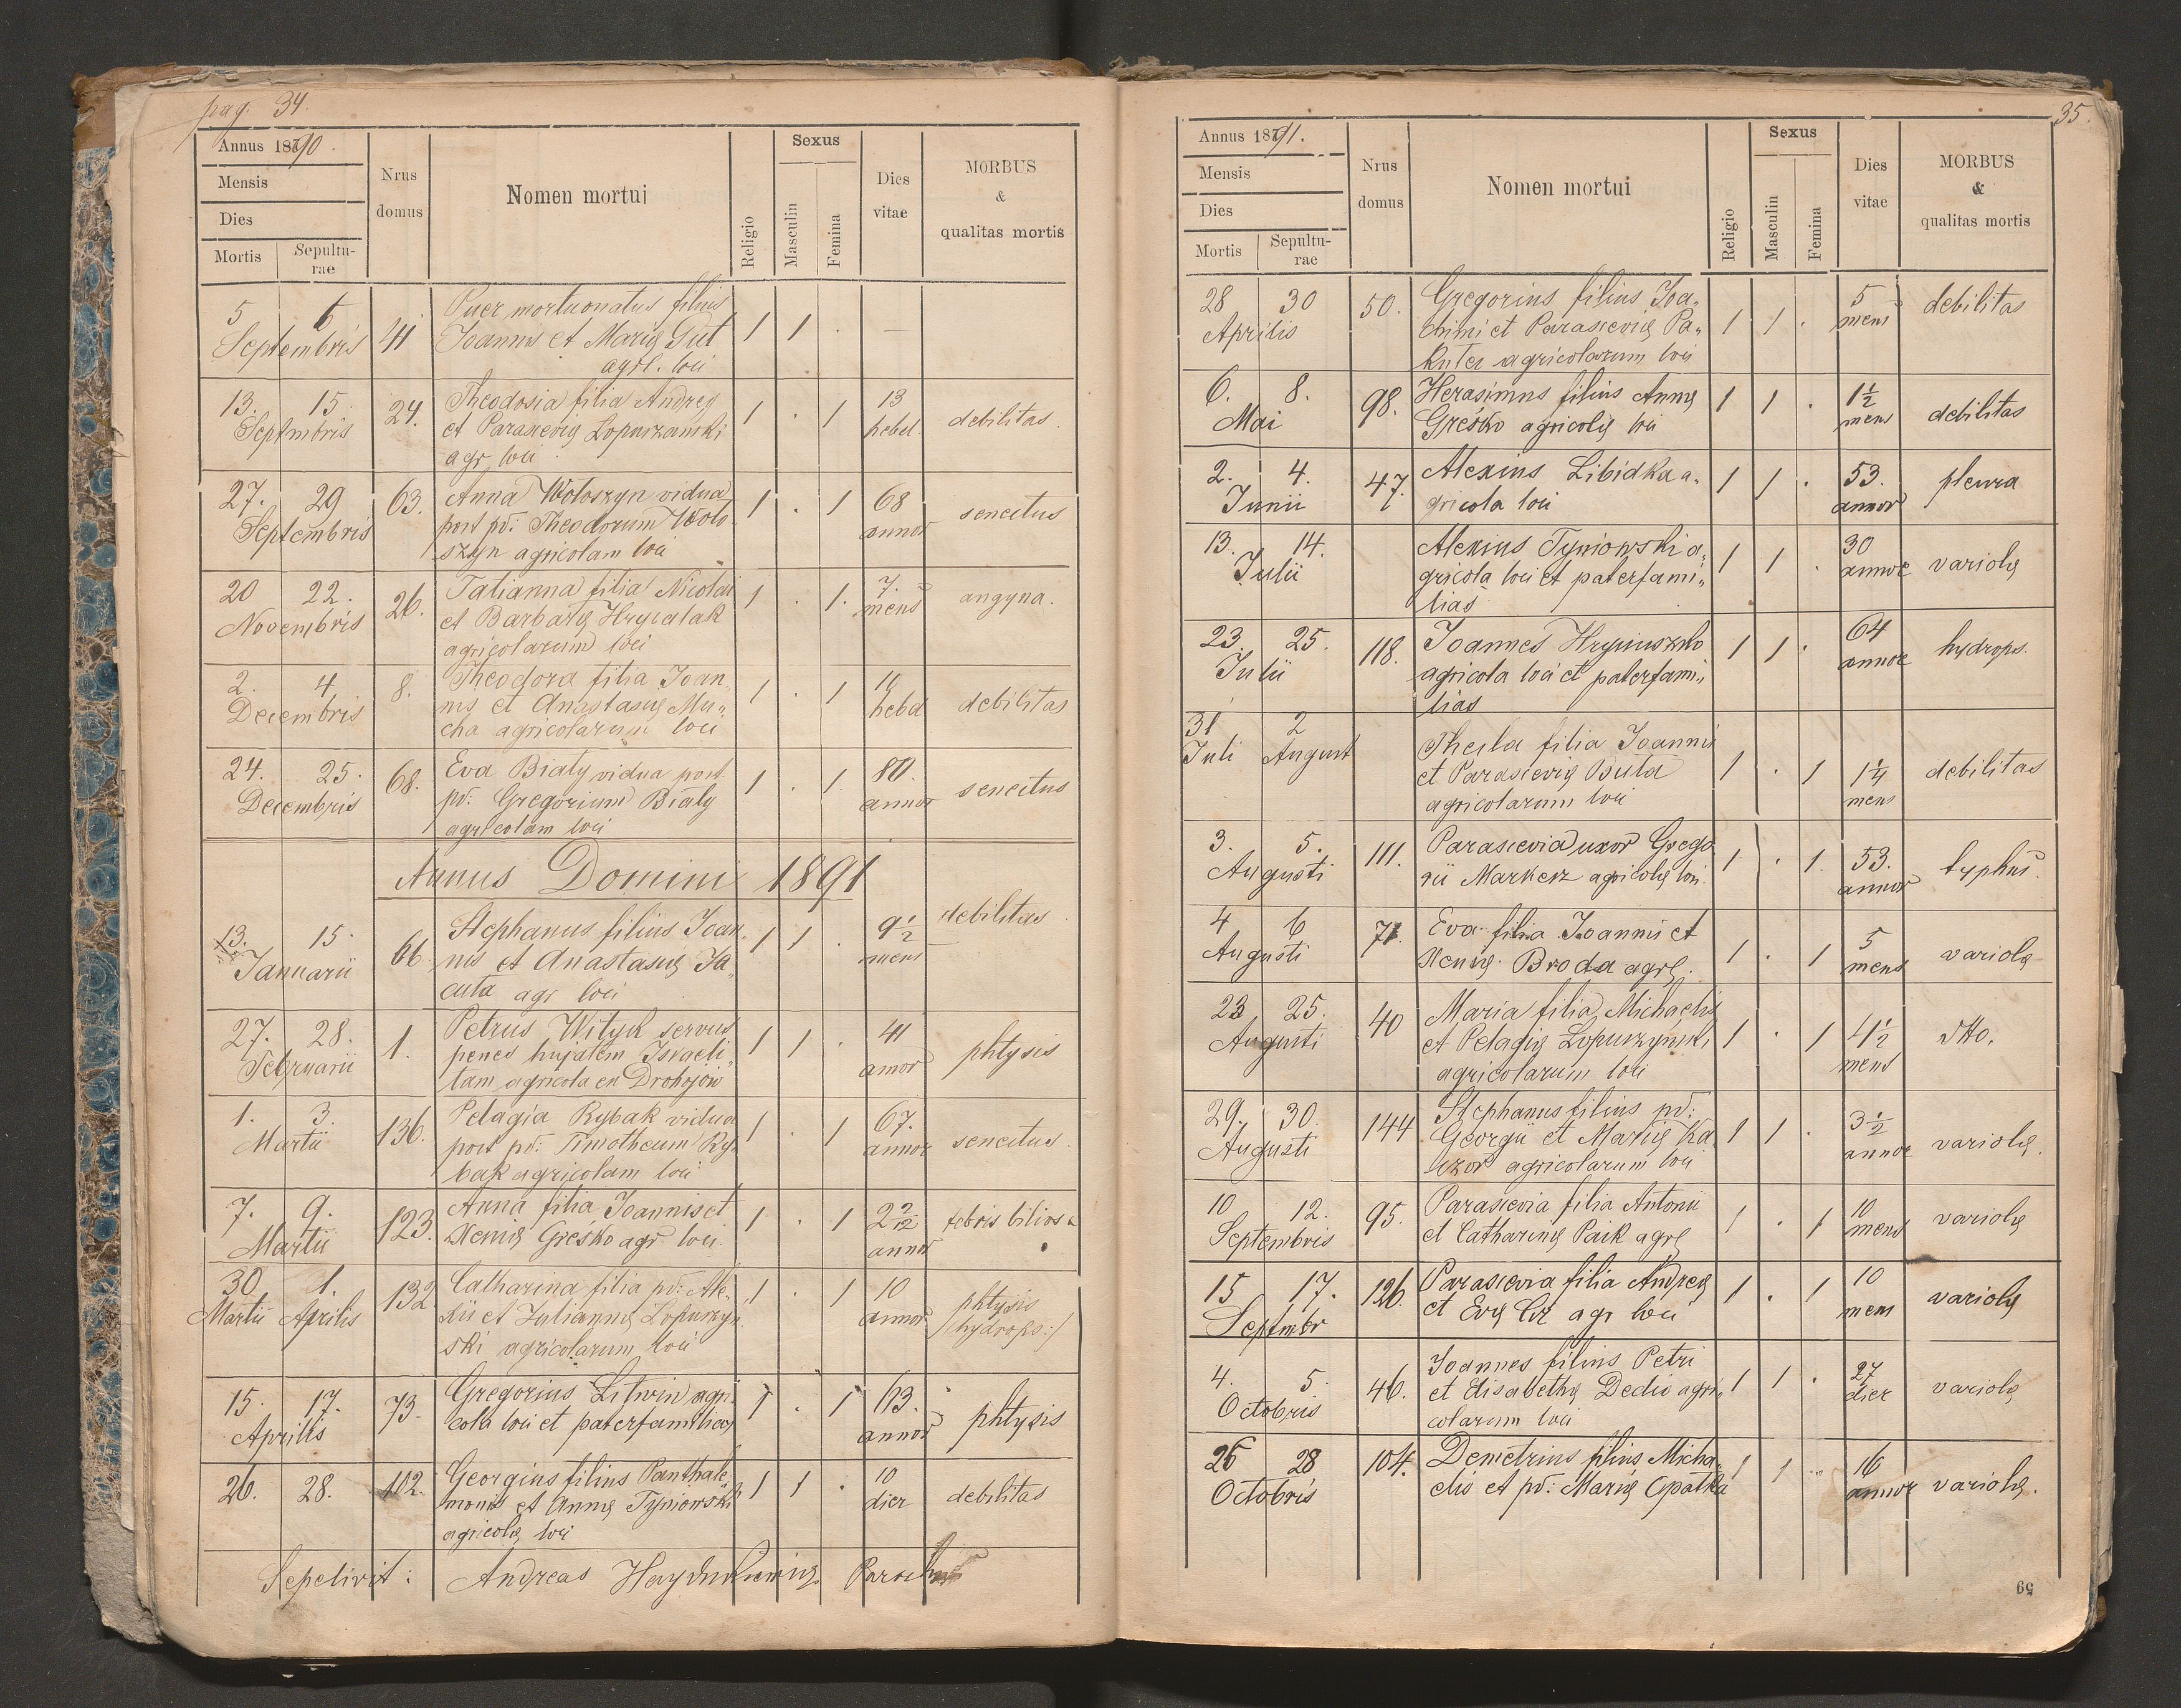 pag. 34.
Annus 1890.
Mensis
Dies
Mortis Sepultu-
rae
Nrus
domus
Nomen mortui
Religio
Sexus
Masculin
Femina
Dies
vitae
MORBUS
&
qualitas mortis
5 6
Septembris
41
Puer mortuonatus filius
Joannis et Marię Gut
agrl. loci
1 1 . —
13. 15.
Septmbris
24.
Theodosia filia Andreę
et Parascevię Lopuszanski
agr loci
1 . 1
13
hebd.
debilitas.
27. 29
Septembris
63.
Anna Wołoszyn vidua
post pd: Theodorum Woło-
szyn agricolam loci
1 . 1
68
annor
senectus
20 22.
Novembris
26.
Tatianna filia Nicolai
et Barbarę Hrycalak
agricolarum loci
1 . 1.
7.
mens
angyna.
2. 4
Decembris
8.
Theodora filia Joan
nis et Anastasię Mu„
cha agricolarum loci
1 . 1
hebd
debilitas
24. 25.
Decembris
68.
Eva Biały vidua post
pd: Gregorium Biały
agricolam loci
1 . 1.
80.
annor
senectus
Annus Domini 1891
13. 15.
Januarii
66
Stephanus filius Joan-
nis et Anastasię Ja„
cuta agr loci
1 1 .
9½
mens
debilitas.
27. 28.
Februarii
1.
Petrus Wityk servus
penes hujatem Israeli„
tam agricola ex Drohojów
1 1 .
41
annor
phtysis
1. 3.
Martii
136.
Pelagia Rybak vidua
post pd: Timotheum Ry„
bak agricolam loci
1 . 1
67.
annor
senectus.
7. 9.
Martii
123.
Anna filia Joannis et
Xenię Greśko agr loci.
1 . 1
2 2/12
annor
febris biliosa
30 1.
Martii Aprilis
132
Catharina filia pd: Ale-
xii et Juliannę Lopuszyn
ski agricolarum loci
1 . 1
10
annor
phtysis
/hydrops:/
15. 17.
Aprilis
73.
Gregorius Litwin agri
cola loci et paterfamilias
1 . 1
63.
annor
phtysis
26. 28.
102.
Georgius filius Panthale
monis et Annę Tyniowski
agricolę loci
1 1 .
10
dier
debilitas
Sepelivit: Andreas Parochus
35.
Annus 1891.
Mensis
Dies
Mortis Sepultu-
rae
Nrus
domus
Nomen mortui
Religio
Sexus
Masculin
Femina
Dies
vitae
MORBUS
&
qualitas mortis
28 30
Aprilis
50.
Gregorius filius Joa„
chimi et Parascevię Pa„
kuter agricolarum loci
1 1 .
5
mens
debilitas
6. 8.
Mai
98.
Herasimus filius Annę
Greśko agricolę loci
1 1 .
1½
mens
debilitas
2. 4.
Junii
47.
Alexius Libidka a„
gricola loci
1 1 .
53.
annor
pleura
13. 14.
Julii
Alexius Tyniowski a„
gricola loci et paterfami„
lias
1 1 .
30
annor
variolę
23. 25.
Julii
118.
Joannes Hryniuszko
agricola loci et paterfami„
lias
1 1 .
64
annor
hydrops.
31 2
Juli August
Thecla filia Joannis
et Parascevię Buła
agricolarum loci
1 . 1
1¼
mens
debilitas
3. 5.
Augusti
111.
Parascevia uxor Grego
rii Markerz agricolę loci
1. . 1.
53.
annor
typhus.
4 6
Augusti
71.
Eva filia Joannis et
Xenię Broda agrlę.
1 . 1
5
mens
variolę
23 25.
Augusti
40
Maria filia Michaelis
et Pelagię Lopuszynski
agricolarum loci
1 . 1
4½
mens
dtto.
29. 30.
Augusti
144
Stephanus filius pd:
Georgii et Marię Ka
czor agricolarum loci
1 1 .
3½
annor
variolę.
10 12.
Septembris
95.
Parascevia filia Antonii
et Catharinę Paik agrę
1 . 1
10
mens
variolę
15 17.
Septmbr
126.
Parascevia filia Andreę
et Evę agr loci
1 . 1
10
mens
variolę
4. 5.
Octobris
46.
Joannes filius Petri
et Elisabethę Dedio agri„
colarum loci
1 1 .
27
dier
variolę
26 28
Octobris
104.
Demetrius filius Micha„
elis et pd: Marię Opałka
1 1 .
16
annor
variolę.
59